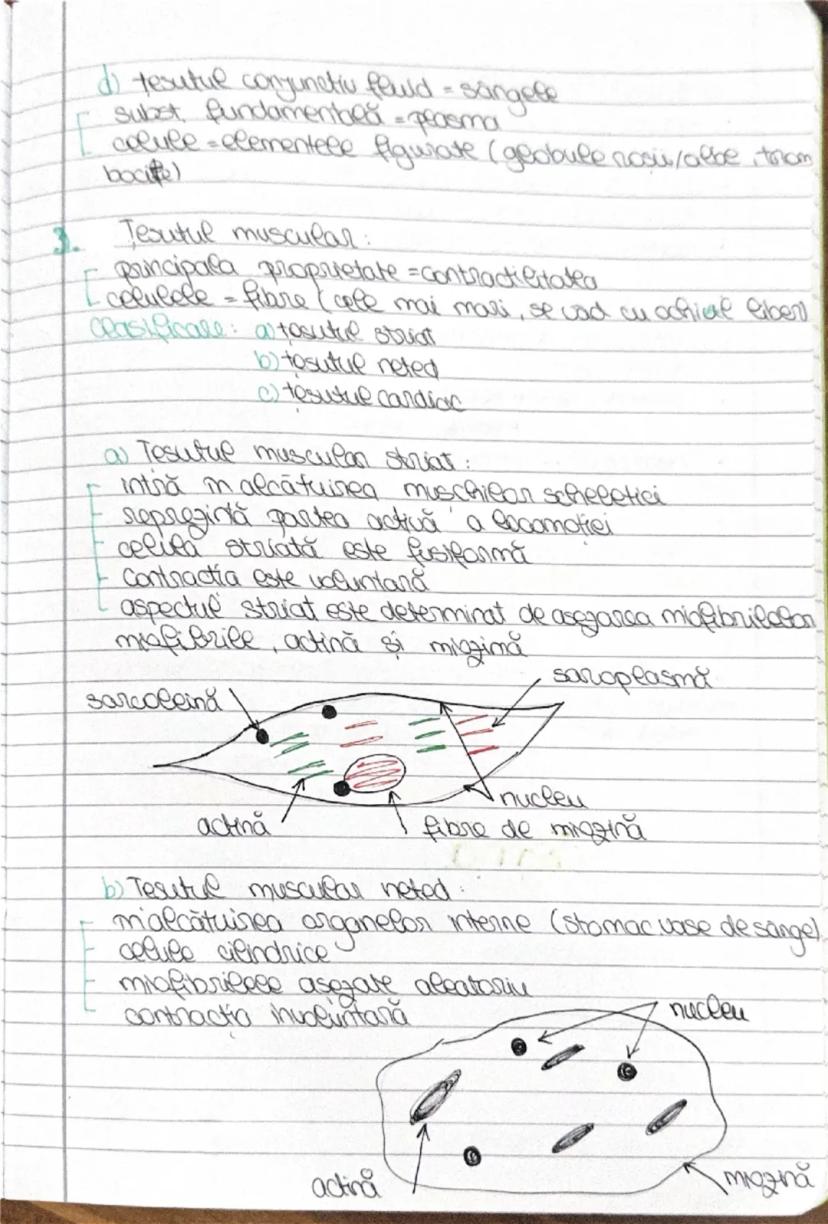 d) Țesutul conjunctiv fluid = sângele
subst. fundamentală = plasma
celule = elementele figurate (globule roșii/albe, trom
bocite)
3. Țesutul muscular:
principala proprietate = contractilitatea
celulele = fibre (cele mai mari, se văd cu ochiul liber)
Clasificare: a) țesutul striat
b) țesutul neted
c) țesutul cardiac
a) Țesutul muscular striat:
intră în alcătuirea mușchilor scheletici
reprezintă partea activă a locomoției
celula striată este fusiformă
contracția este voluntară
aspectul striat este determinat de așezarea miofibrilelor
miofibrile, actină și miozină
sarcoleină
sarcoplasmă
nucleu
actină
fibre de miozină
b) Țesutul muscular neted:
în alcătuirea organelor interne (stomac vase de sânge)
celule cilindrice
miofibrilele așezate aleatoriu
contracția involuntară
nucleu
actină
miozină